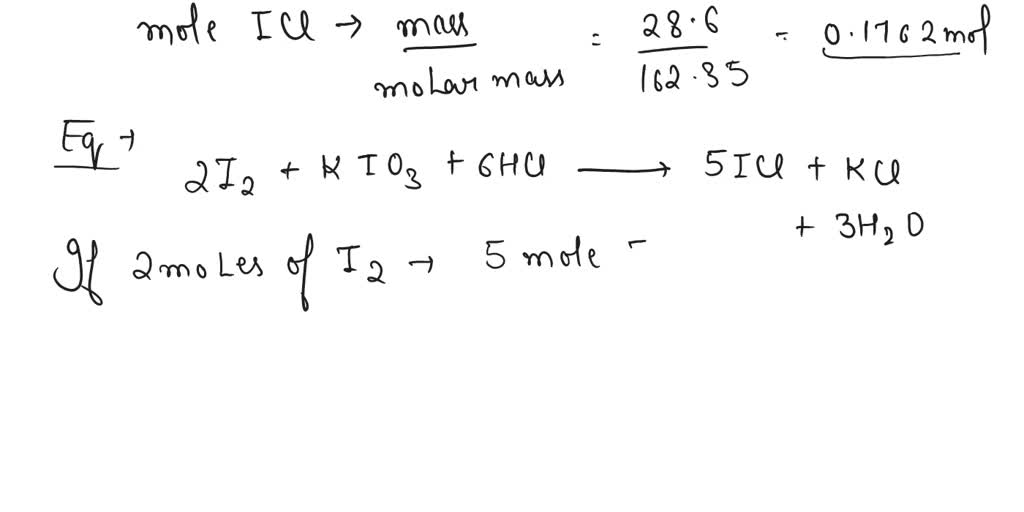 mole ICl → mass / molar mass = 28.6 / 162.35 = 0.1762 mol
Eq →
2I₂ + KIO₃ + 6HCl ⟶ 5ICl + KCl
+ 3H₂O
If 2 moles of I₂ → 5 mole